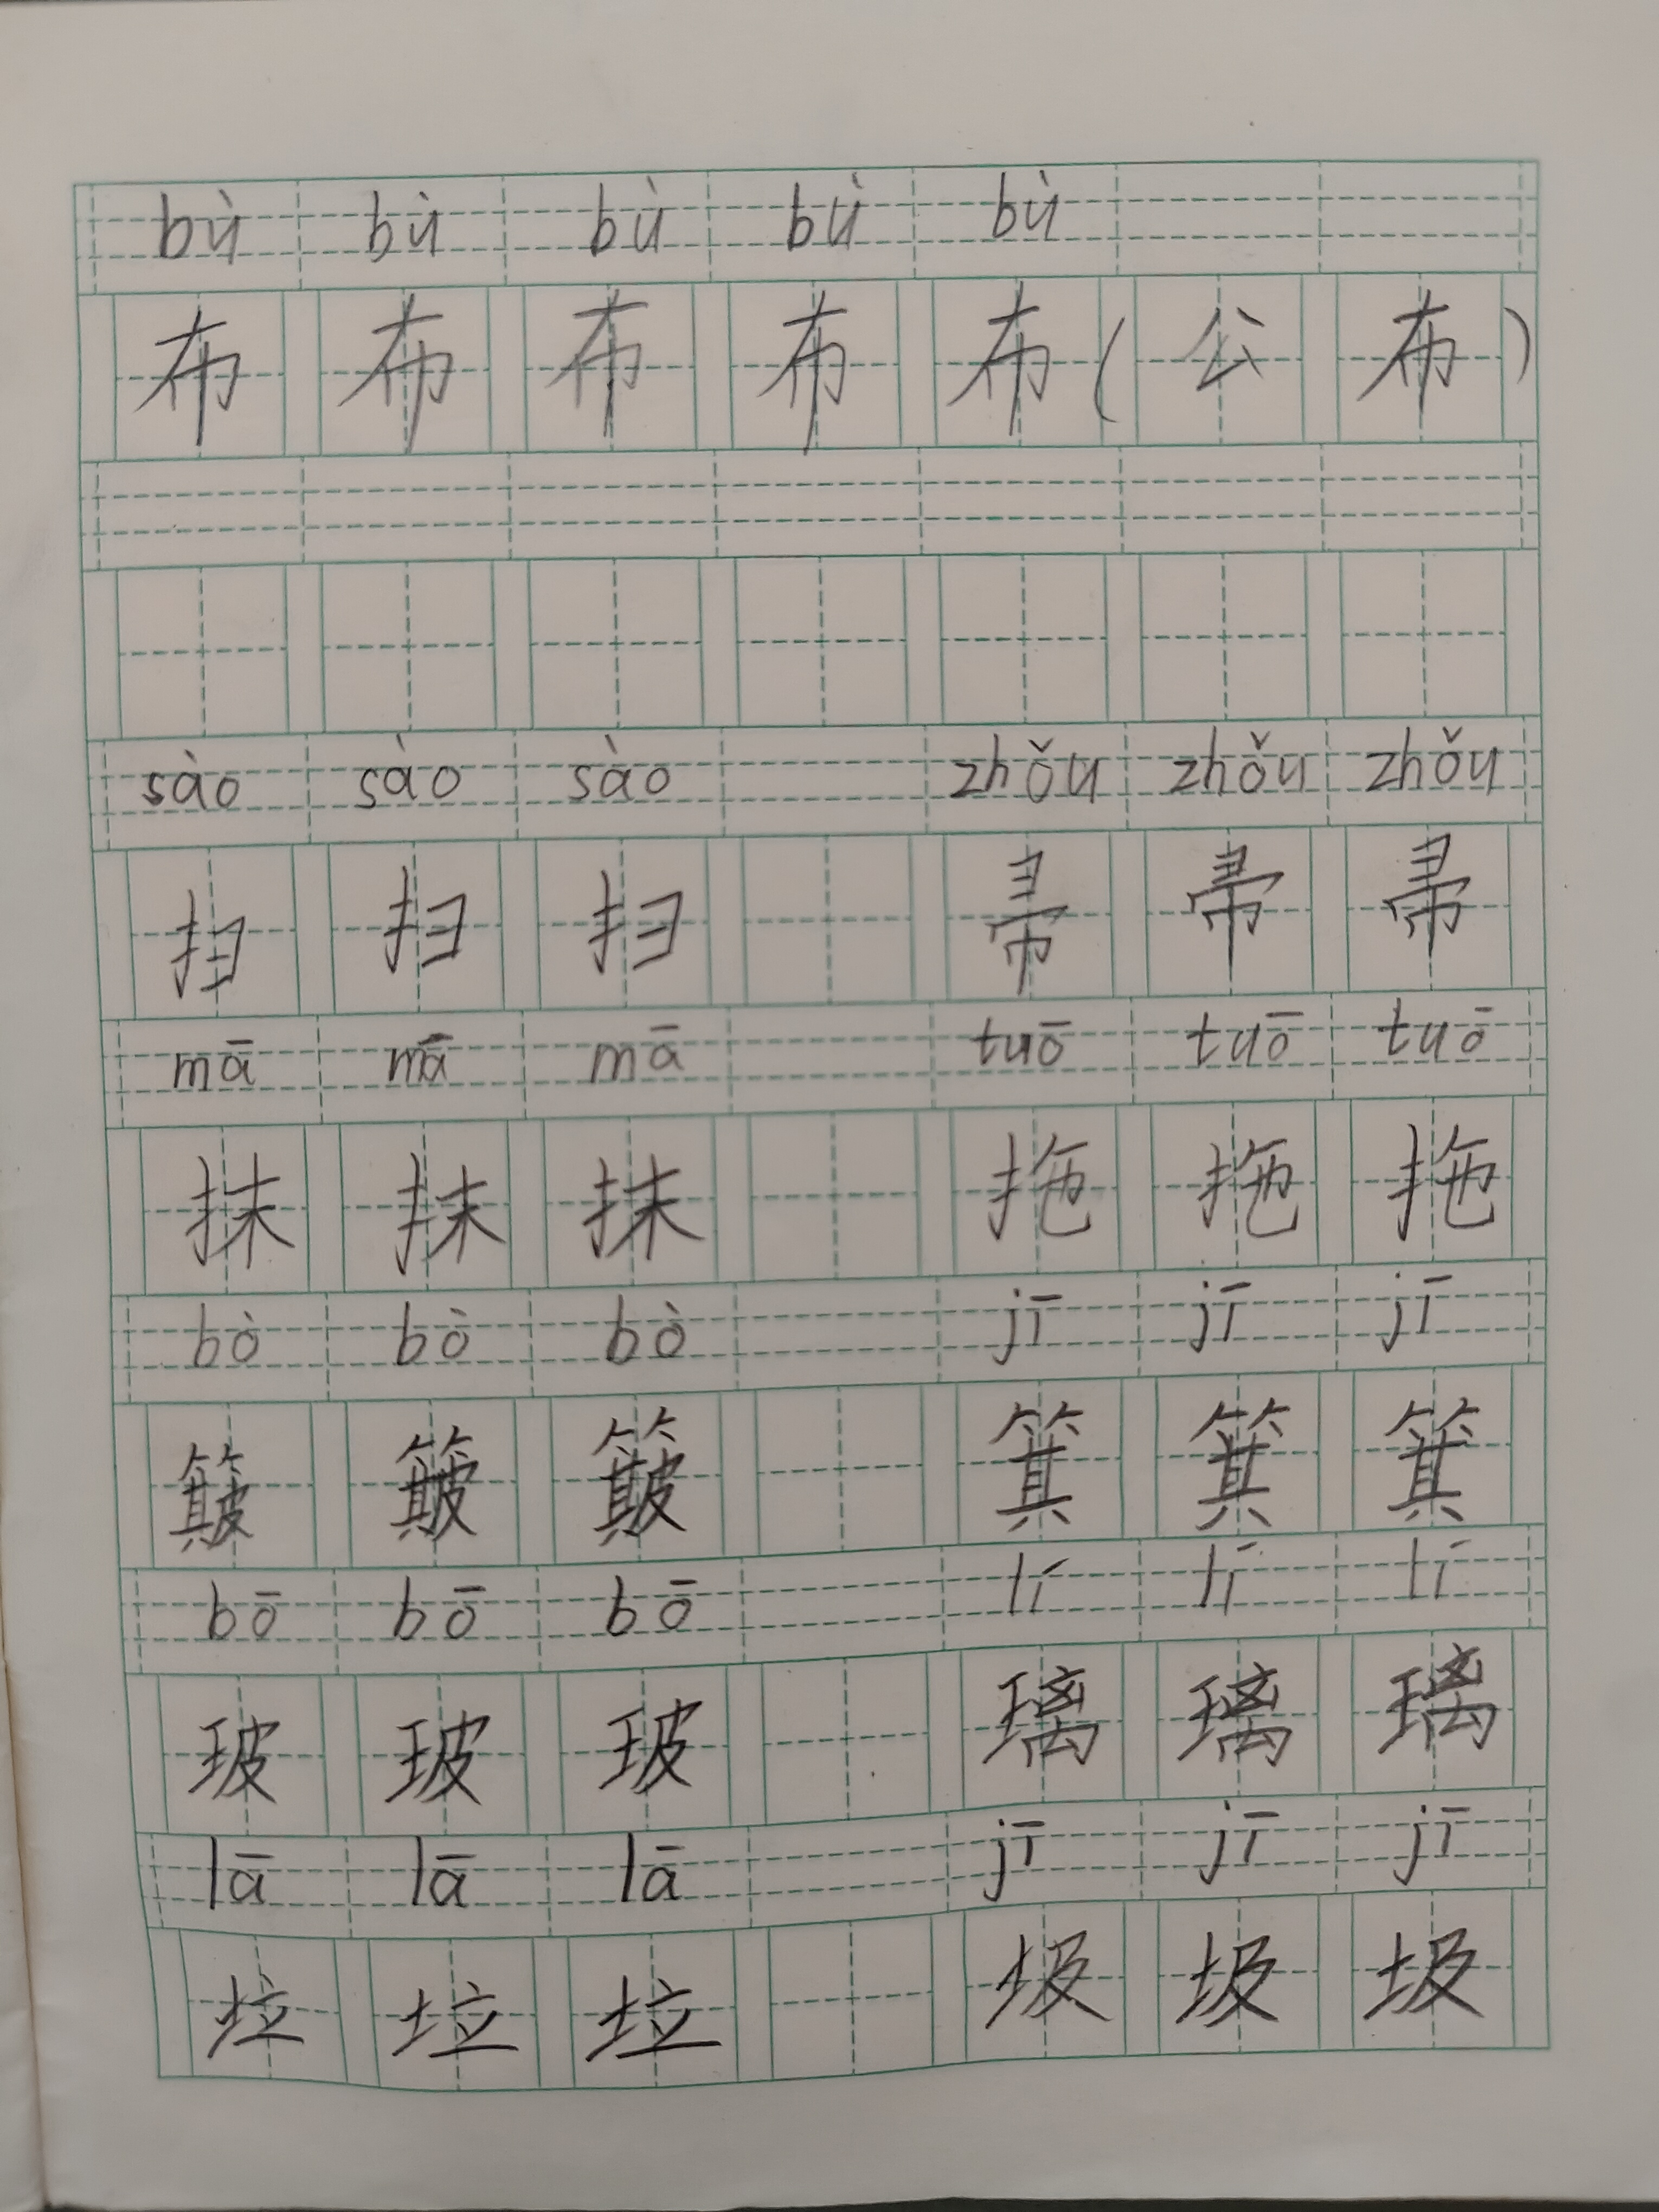 bù bù bù bù bù
布 布 布 布 布 ( 公 布 )
sào sào sào zhǒu zhǒu zhǒu
扫 扫 扫 帚 帚 帚
mā mā mā tuō tuō tuō
抹 抹 抹 拖 拖 拖
bò bò bò jī jī jī
簸 簸 簸 箕 箕 箕
bō bō bō lí lí lí
玻 玻 玻 璃 璃 璃
lā lā lā jī jī jī
垃 垃 垃 圾 圾 圾